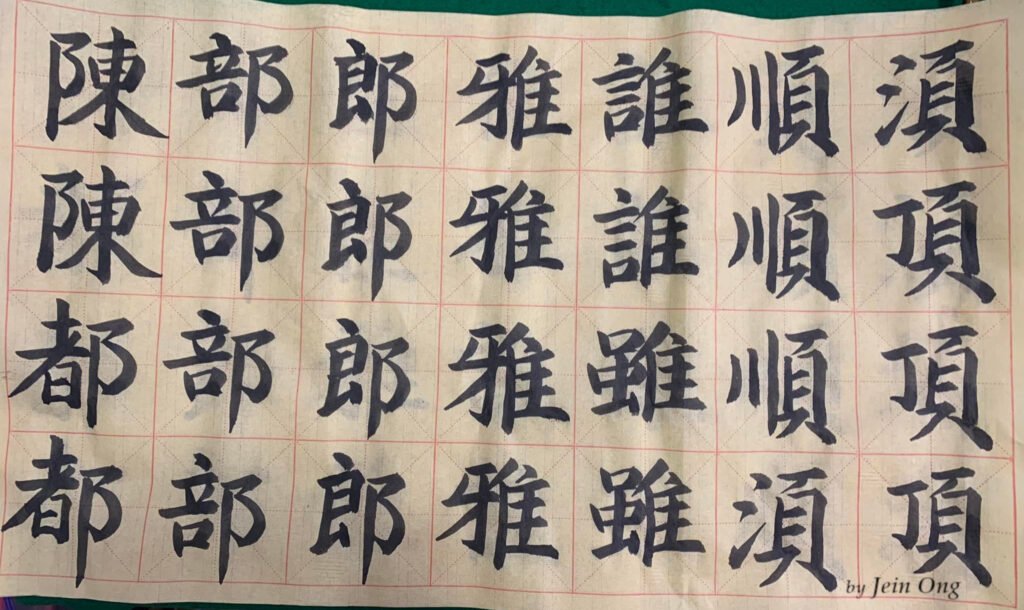 陳陳都都
部部部部
郎郎郎郎
雅雅雅雅
誰誰雖雖
順順順湏
湏頂頂頂
by Jein Ong